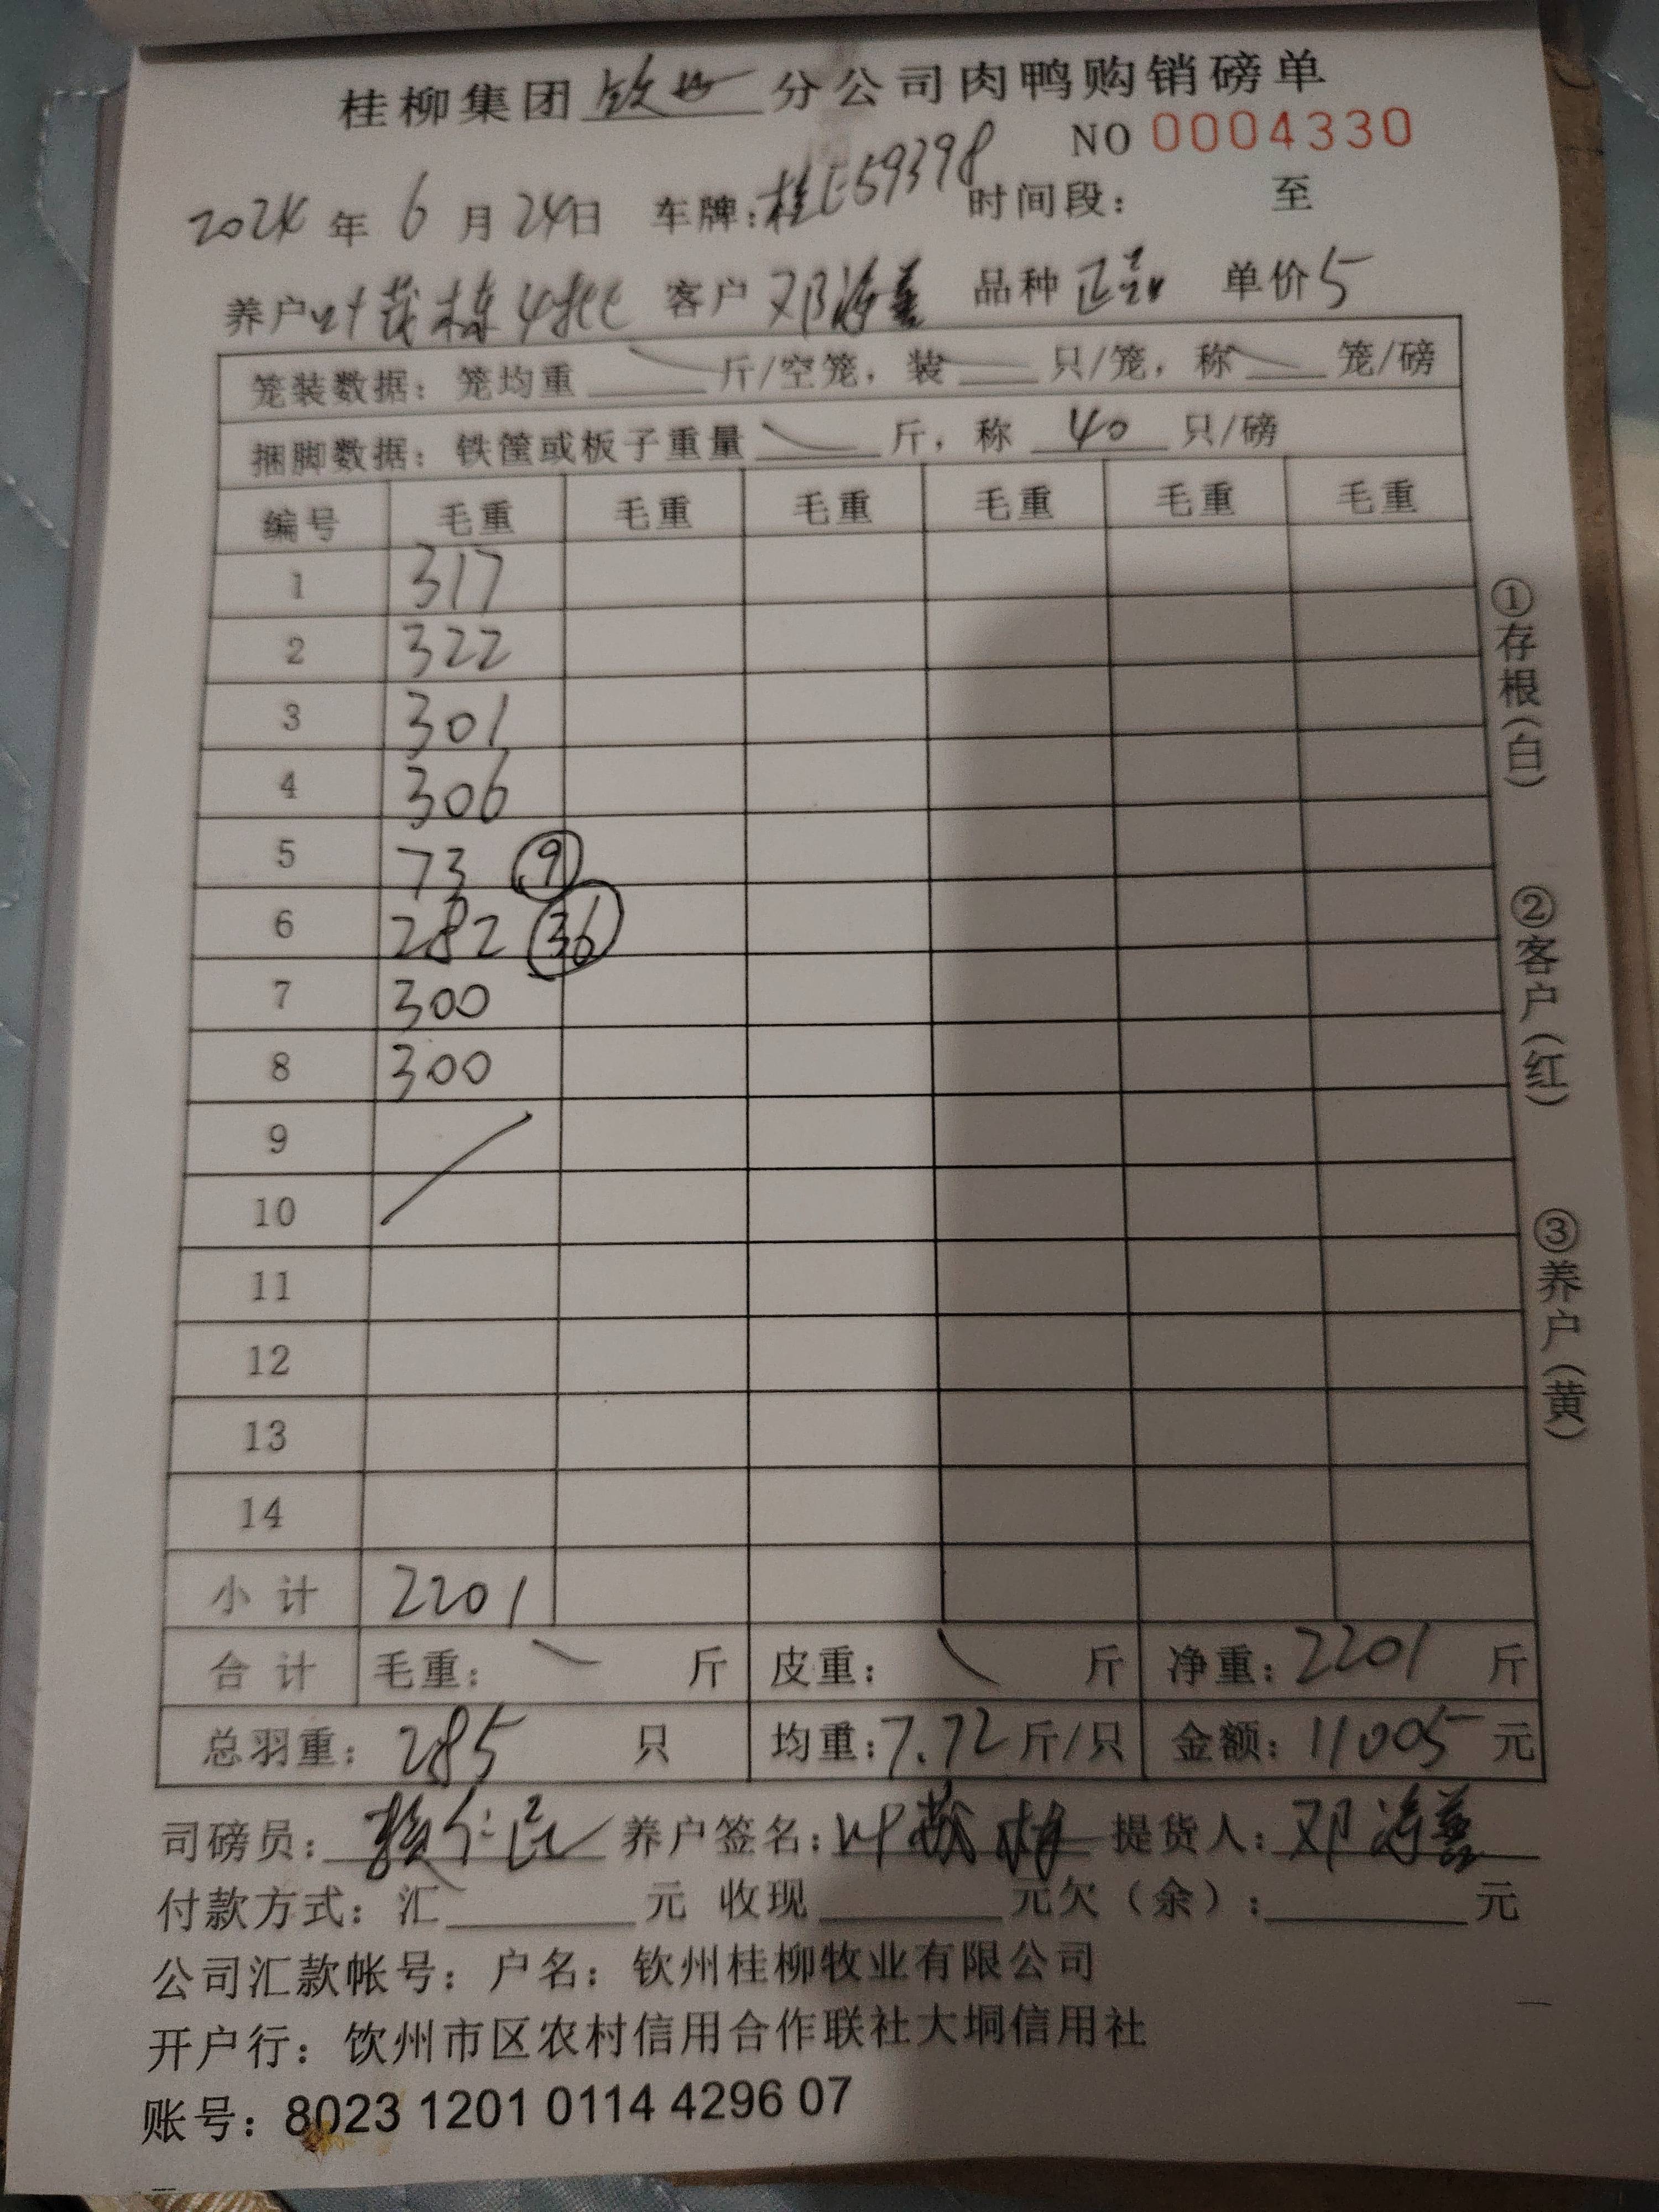 桂柳集团钦州分公司肉鸭购销磅单
NO 0004330
2024年6月24日 车牌:桂E59398 时间段: 至
养户叶茂栋4批 客户邓海善 品种正 单价5
笼装数据: 笼均重 斤/空笼, 装 只/笼, 称 笼/磅
捆脚数据: 铁筐或板子重量 斤, 称 40 只/磅
编号 毛重 毛重 毛重 毛重 毛重 毛重
1 317
2 322
3 301
4 306
5 73 9
6 282 36
7 300
8 300
9
10
11
12
13
14
小计 2201
合计 毛重: 斤 皮重: 斤 净重: 2201 斤
总羽重: 285 只 均重: 7.72 斤/只 金额: 11005 元
司磅员: 养户签名: 叶茂栋 提货人: 邓海善
付款方式: 汇 元 收现 元欠(余): 元
公司汇款帐号: 户名: 钦州桂柳牧业有限公司
开户行: 钦州市区农村信用合作联社大垌信用社
账号: 8023 1201 0114 4296 07
①存根(白)
②客户(红)
③养户(黄)